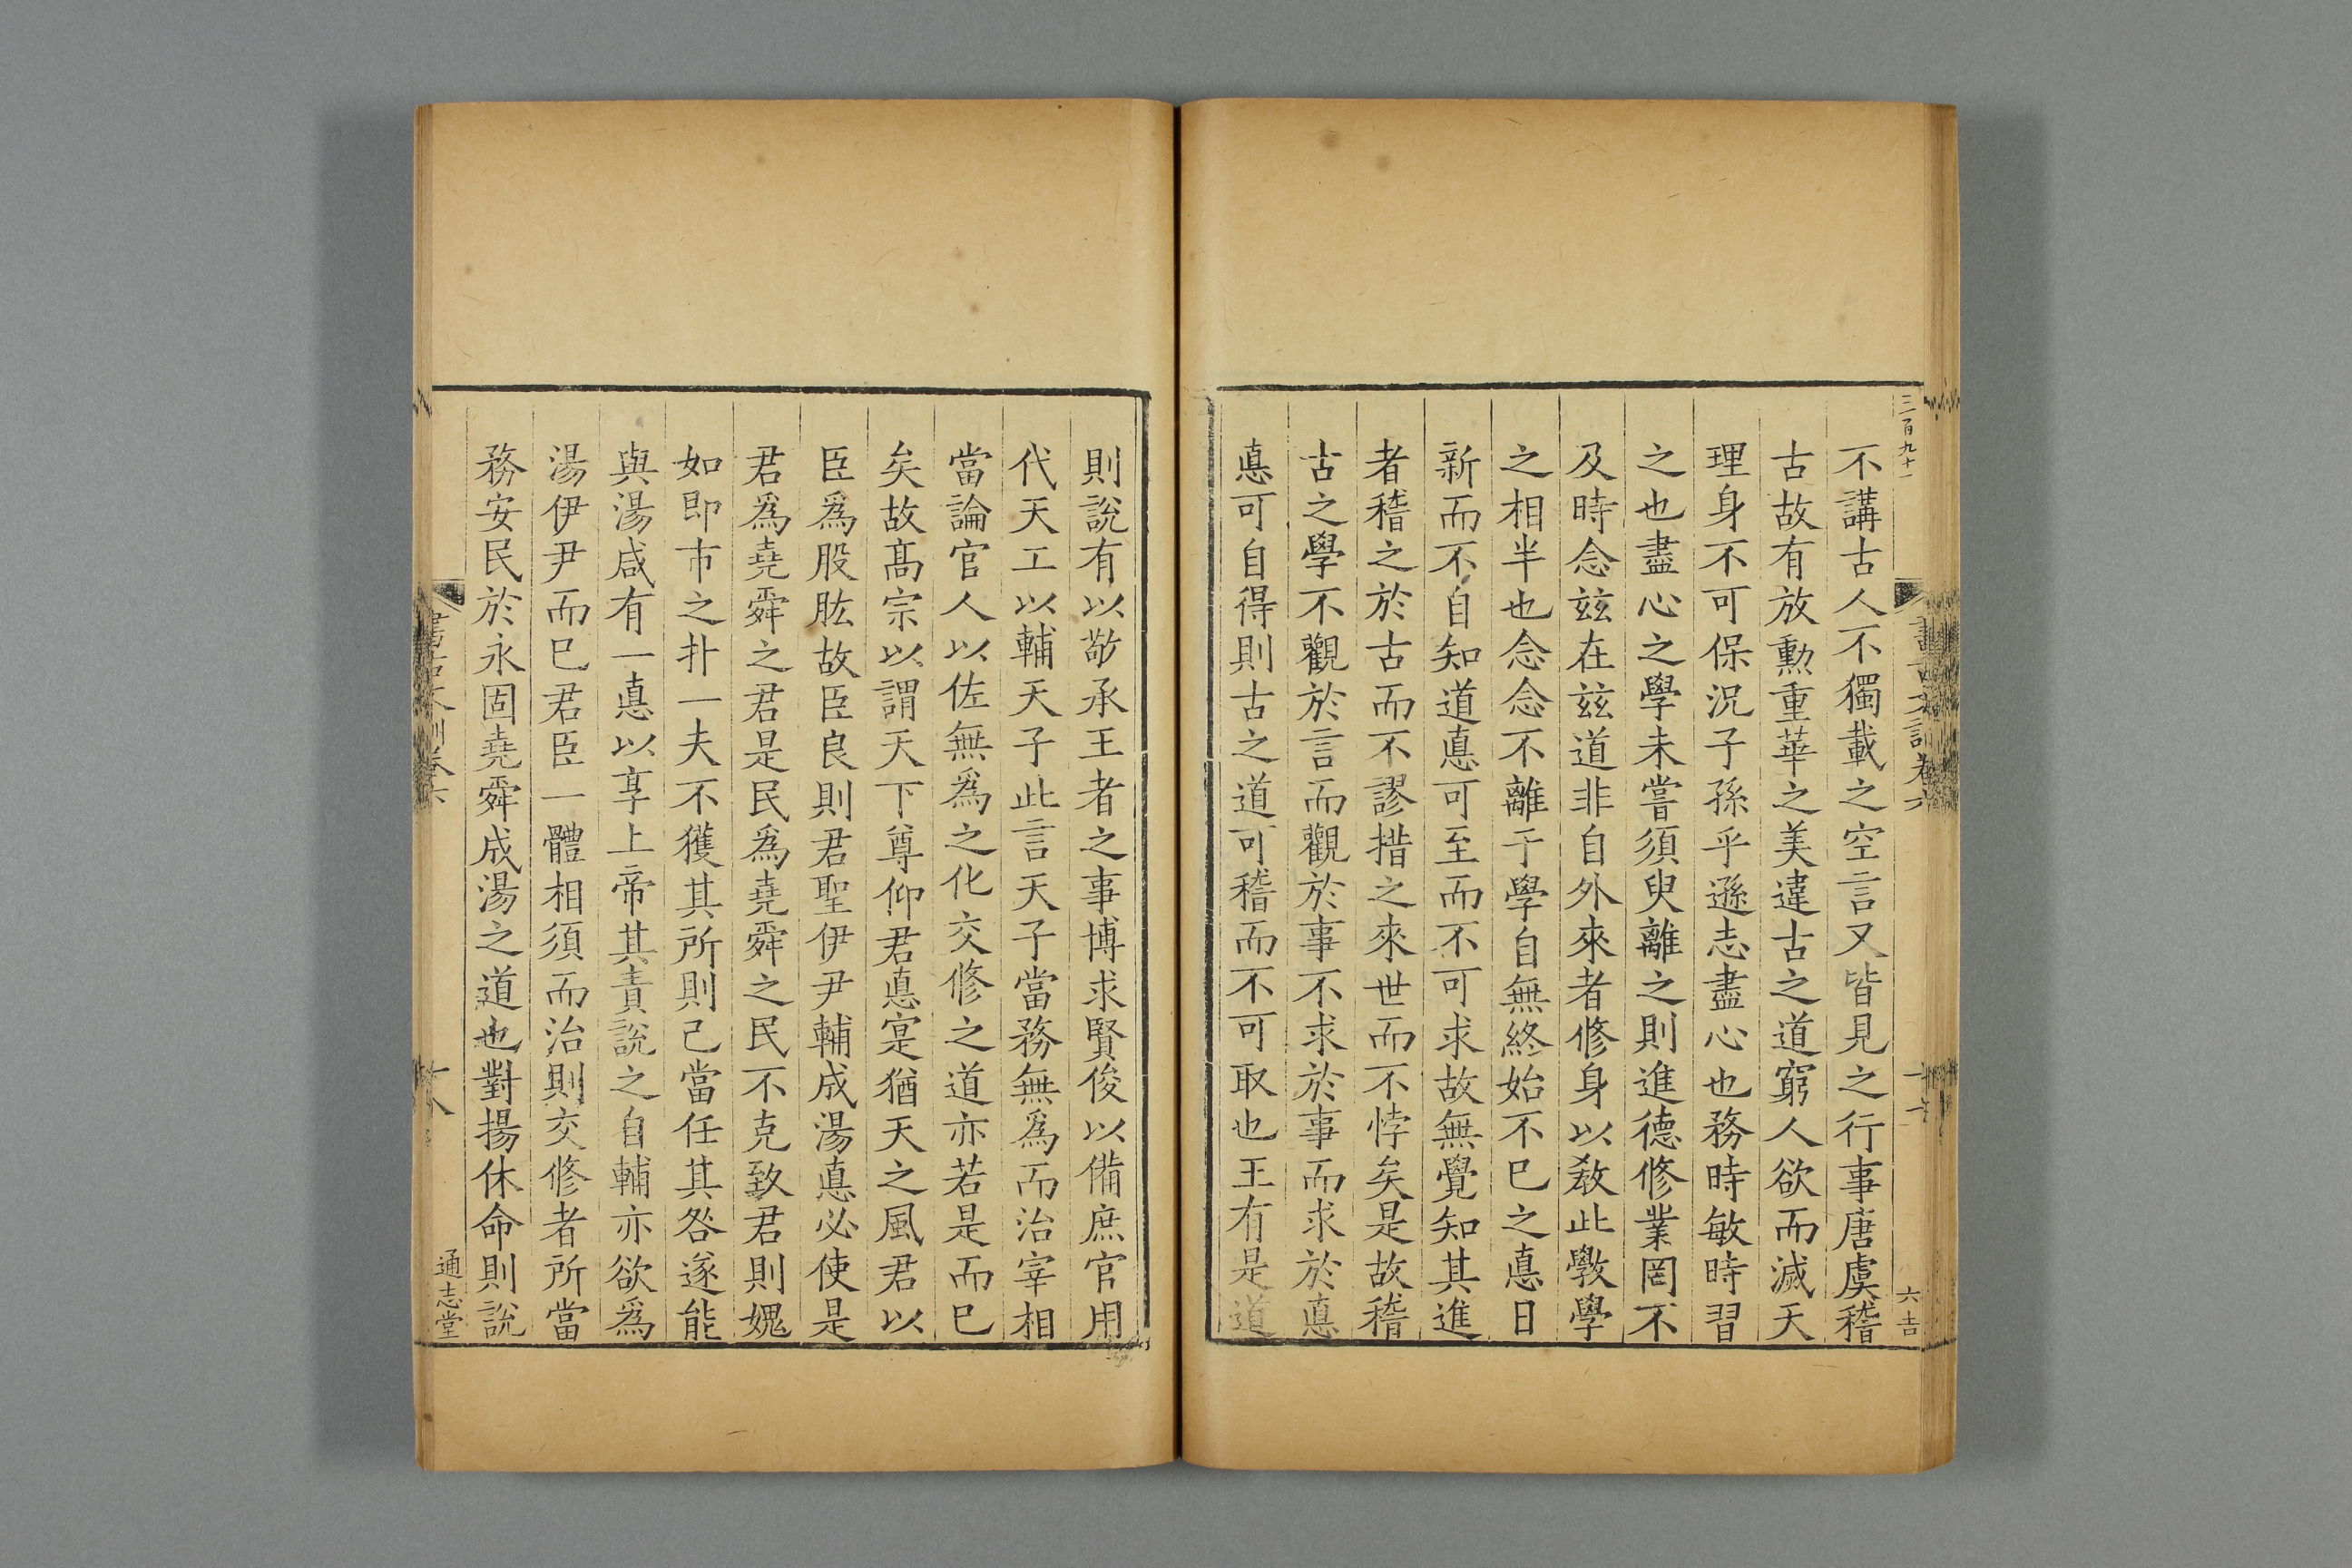 三百九十一
六吉
不講古人不獨載之空言又皆見之行事唐虞稽
古故有放勳重華之美違古之道窮人欲而滅天
理身不可保況子孫乎遜志盡心也務時敏時習
之也盡心之學未嘗須臾離之則進德修業罔不
及時念玆在玆道非自外來者修身以敎此斆學
之相半也念念不離于學自無終始不巳之悳日
新而不自知道悳可至而不可求故無覺知其進
者稽之於古而不謬措之來世而不悖矣是故稽
古之學不觀於言而觀於事不求於事而求於悳
悳可自得則古之道可稽而不可取也王有是道
則說有以敬承王者之事博求賢俊以備庶官用
代天工以輔天子此言天子當務無爲而治宰相
當論官人以佐無爲之化交修之道亦若是而巳
矣故髙宗以謂天下尊仰君悳寔猶天之風君以
臣爲股肱故臣良則君聖伊尹輔成湯悳必使是
君爲堯舜之君是民爲堯舜之民不克致君則媿
如即市之扑一夫不獲其所則己當任其咎遂能
與湯咸有一悳以享上帝其責說之自輔亦欲爲
湯伊尹而巳君臣一體相須而治則交修者所當
務安民於永固堯舜成湯之道也對揚休命則說
通志堂